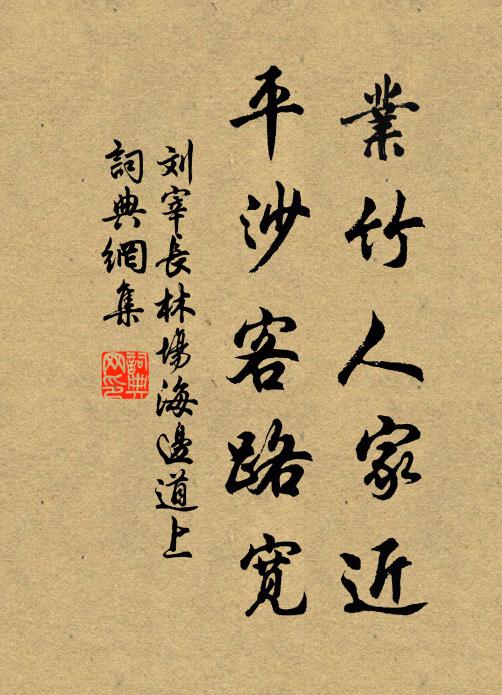 業竹人家近
平沙客路寬
刘宰長林場海邊道上
詞典網集
詞典网印